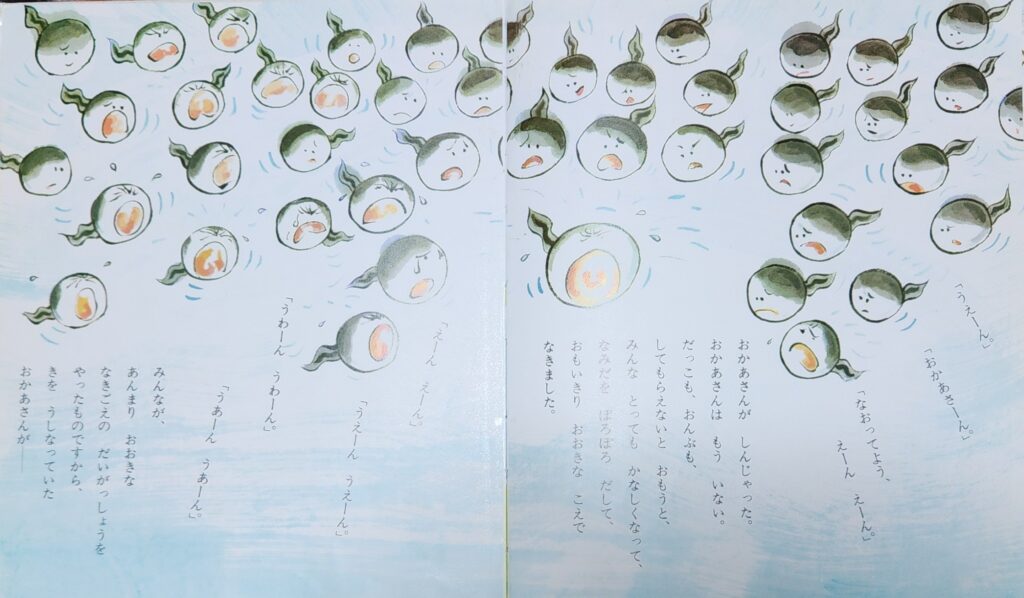 「うえーん。」
「おかあさーん。」
「なおってよう、
えーん　えーん。」
おかあさんが　しんじゃった。
おかあさんは　もう　いない。
だっこも、おんぶも、
してもらえないと　おもうと、
みんな　とっても　かなしくなって、
なみだを　ぽろぽろ　だして、
おもいきり　おおきな　こえで
なきました。
「えーん　えーん。」
「うえーん　うえーん。」
「うわーん　うわーん。」
「うあーん　うあーん。」
みんなが、
あんまり　おおきな
なきごえの　だいがっしょうを
やったものですから、
きを　うしなっていた
おかあさんが――